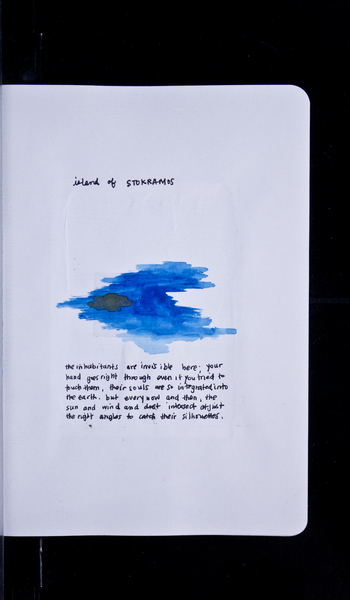 island of STOKRAMOS
the inhabitants are invisible here; your
hand goes right through even if you tried to
touch them, their souls are so integrated into
the earth. but every now and then, the
sun and wind and dust intersect at just
the right angles to catch their silhouettes.